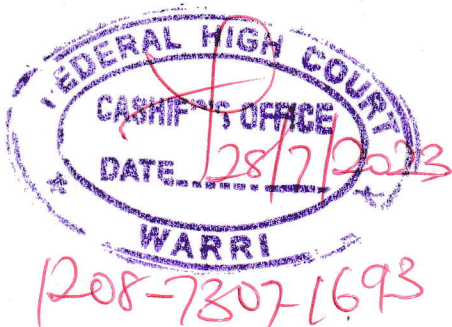 FEDERAL HIGH COURT
CASHIER'S OFFICE
DATE 28/7/2023
WARRI
1208-7307-1693